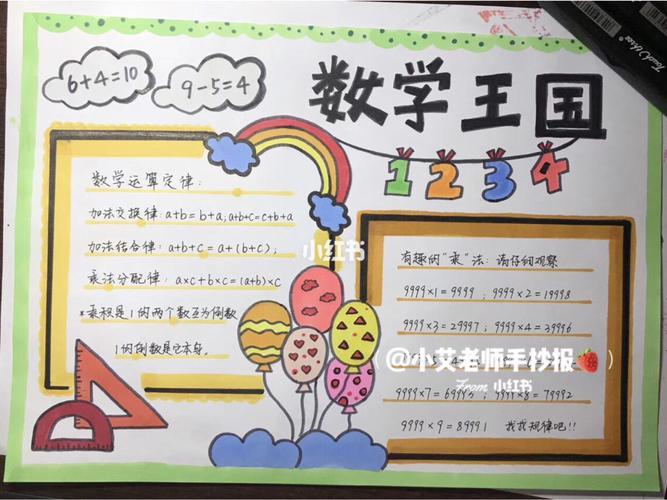 6+4=10
9-5=4
数学王国
1234
数学运算定律:
加法交换律:a+b=b+a;a+b+c=c+b+a
加法结合律:a+b+c=a+(b+c);
乘法分配律:a×c+b×c=(a+b)×c
*乘积是1的两个数互为倒数
1的倒数是它本身。
小红书
有趣的"乘"法:请仔细观察
9999×1=9999;9999×2=19998
9999×3=29997;9999×4=39996
(@小艾老师手抄报🍓)
From 小红书
9999×7=69993;9999×8=79992
9999×9=89991 找找规律吧!!
Touch